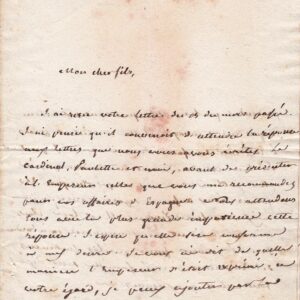 Mon cher fils,
J'ai reçu votre lettre du 15 du mois passé.
J'ai pensé qu'il convenoit d'attendre la réponse
aux lettres que nous vous avons écrites le
cardinal, Paulette et moi, avant de présenter
à l'Empereur celle que vous me recommandez
pour vos affaires d'Espagne. Nous attendons
tous avec la plus grande impatience cette
réponse. J'espère qu'elle sera conforme
à mes désirs. Je vous ai dit de quelle
manière l'Empereur s'étoit exprimé à
votre égard, je puis ajouter par